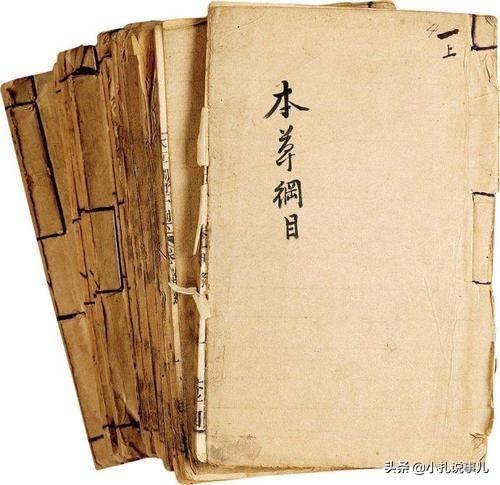 4
一上
本草綱目
头条 @小扎说事儿